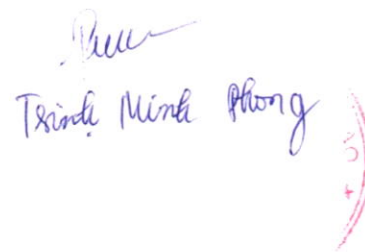 Trịnh Minh Phong